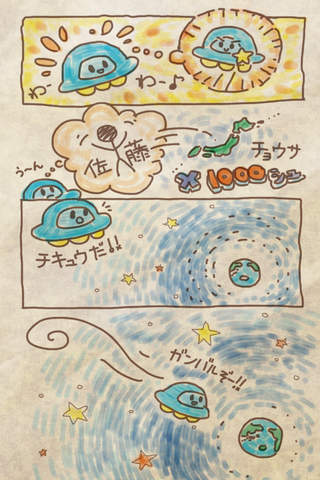 わー
わー♪
佐藤
チョウサ
う～ん
×1000シュー
チキュウだ!!
ガンバルぞー!!